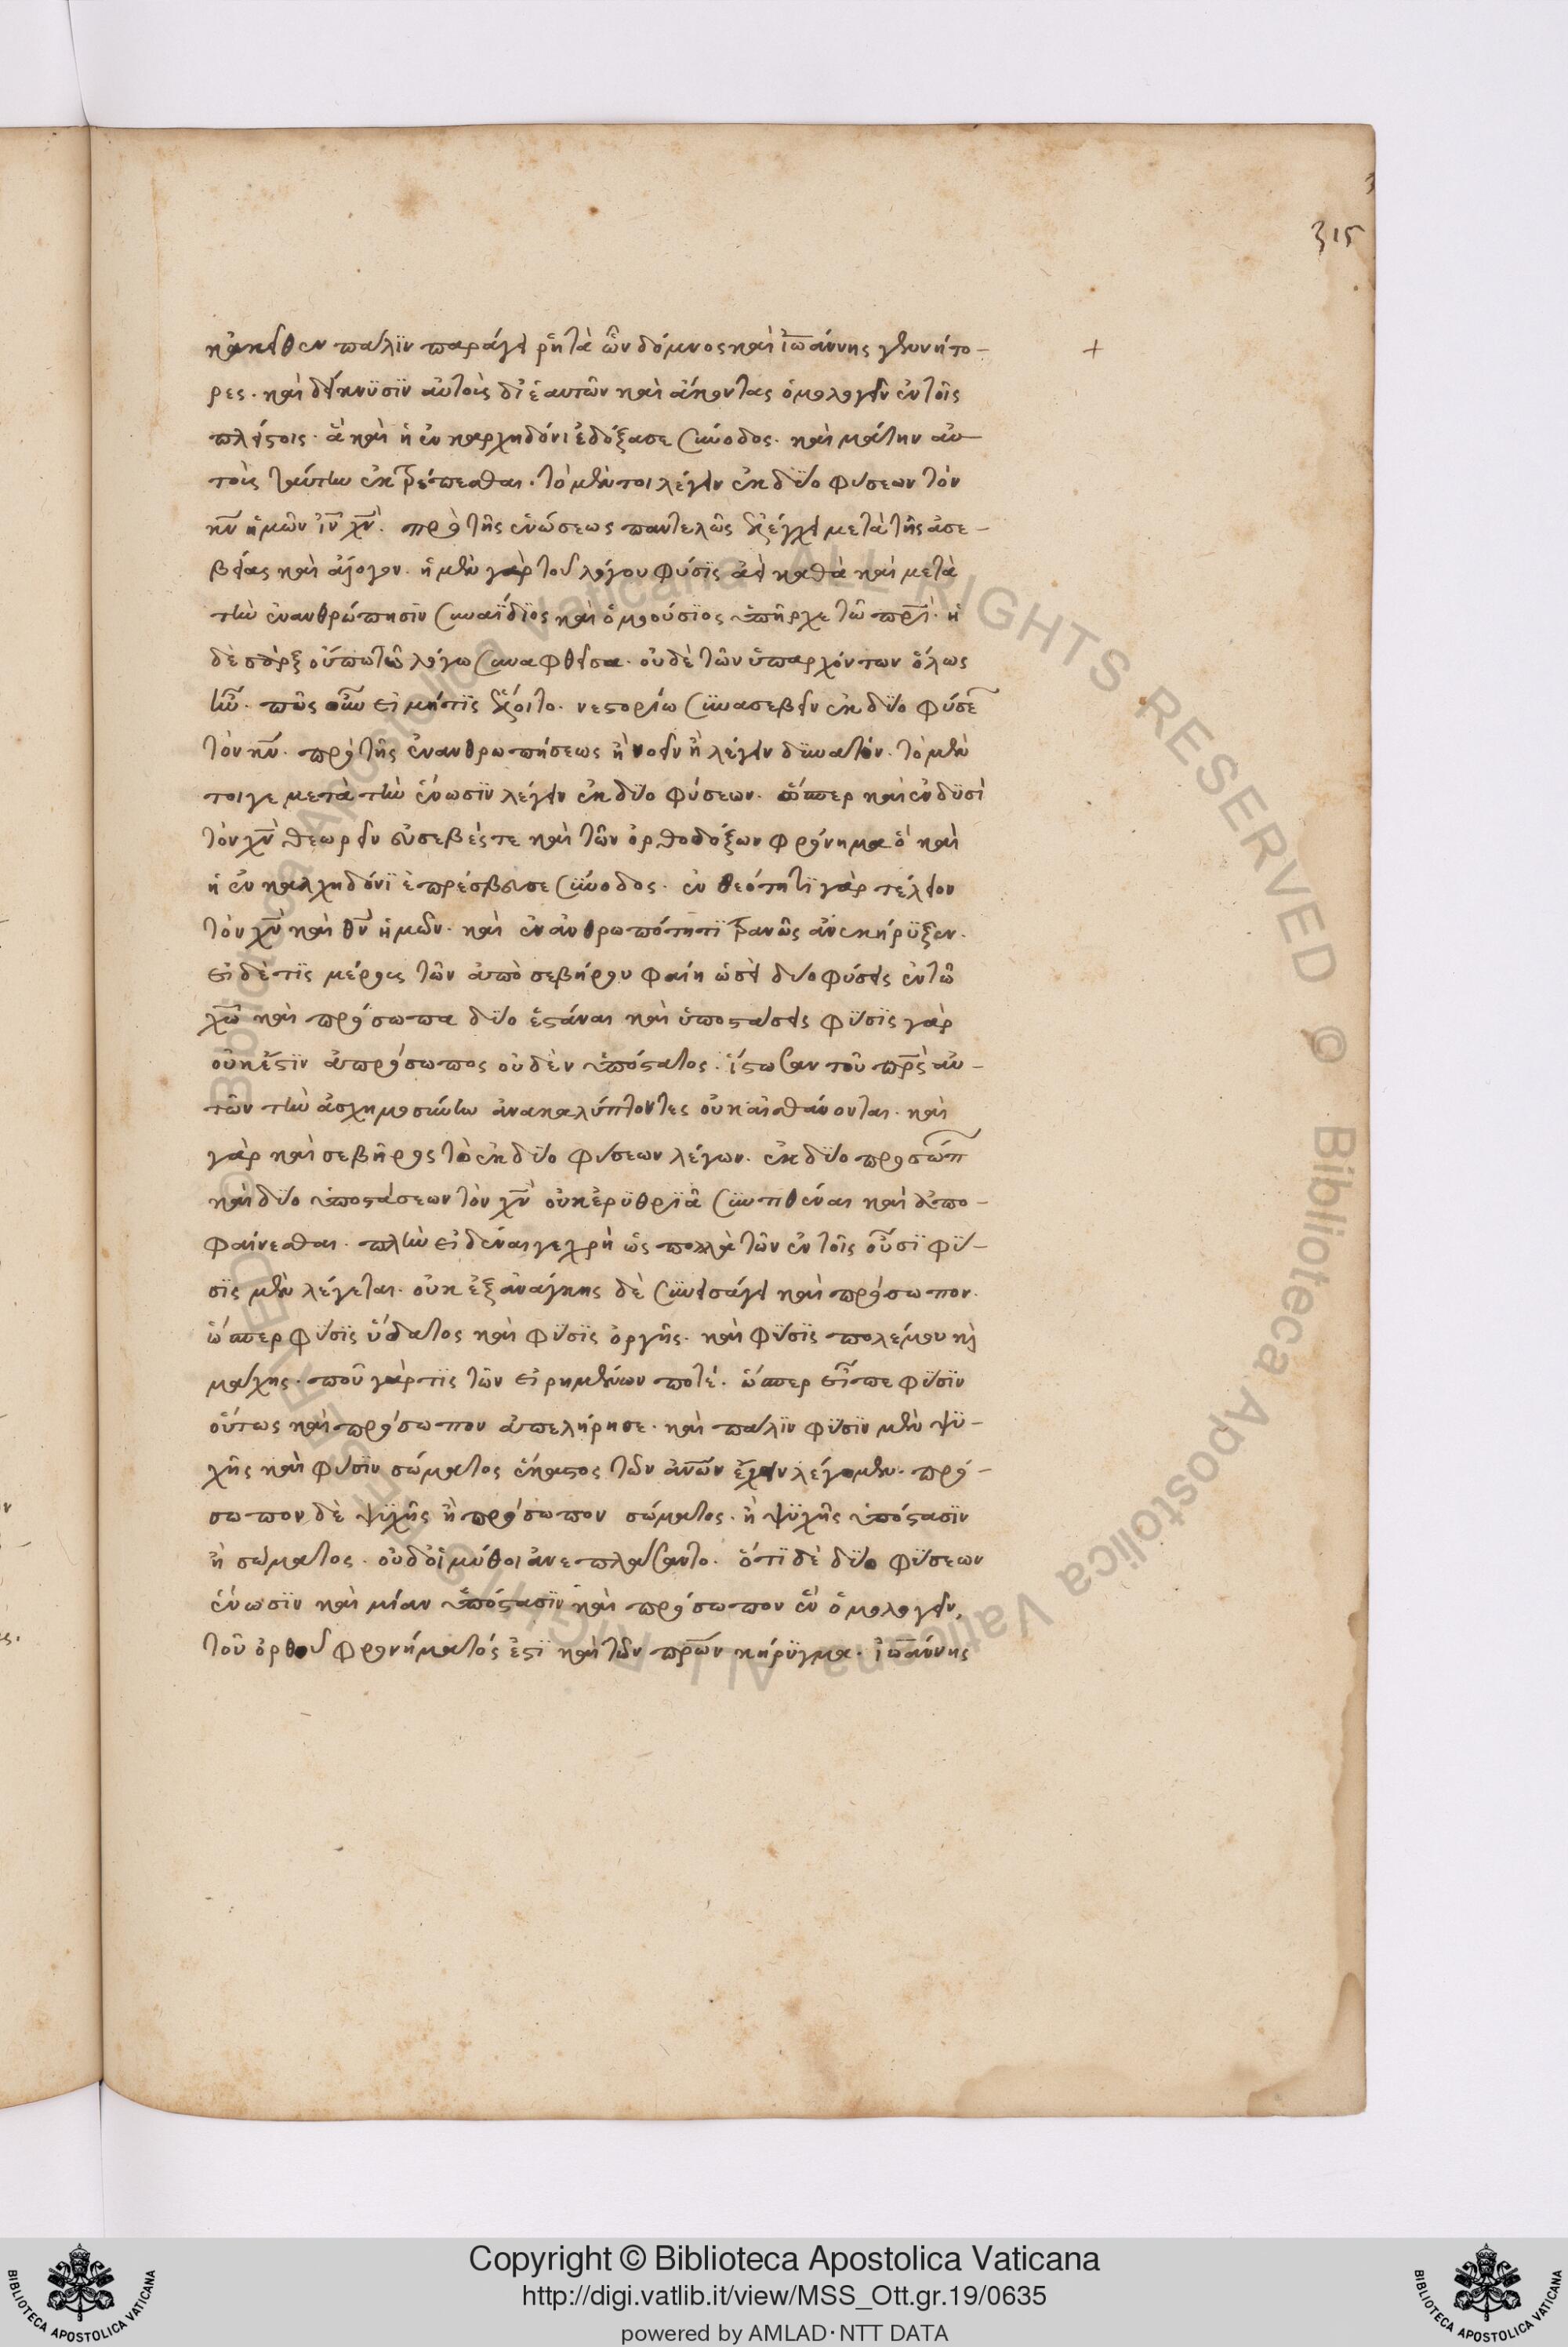 315
+
κἀκεῖθεν πάλϊν παράγει ῥητὰ ὧν δόμνος καὶ ἰωάννης γεννήτο-
ρες. καὶ δείκνϋσϊν αὐτοὺς δι' ἑαυτῶν καὶ ἄκοντας ὁμολογεῖν ἐν τοῖς
πλείστοις. ἃ καὶ ἡ ἐν καρχηδόνι ἐδόξασε σύνοδος. καὶ μάτην αὐ-
τοὺς ταύτην ἐκτρέπεσθαι. τὸ μέντοι λέγειν ἐκ δύο φύσεων τὸν
κν ἡμῶν ιν χν. πρὸ τῆς ἑνώσεως παντελῶς ἐλέγχει μετὰ τῆς ἀσε-
βείας καὶ ἄλογον. ἡ μὲν γὰρ τοῦ λόγου φύσϊς ἀεὶ καθὰ καὶ μετὰ
τὴν ἐνανθρώπησϊν συναΐδϊος καὶ ὁμοούσϊος ὑπῆρχε τῶ πρϊ. ἡ
δὲ σὰρξ οὔπω τῶ λόγω συναφθεῖσα. οὐδὲ τῶν ὑπαρχόντων ὅλως
ἦν. πῶς οὖν εἰ μήτϊς ἕλοιτο. νεστορίω συνασεβεῖν ἐκ δύο φύσε
τὸν κν. πρὸ τῆς ἐνανθρωπήσεως ἢ νοεῖν ἢ λέγειν δϋνατόν. τὸ μέν
τοιγε μετὰ τὴν ἕνωσϊν λέγειν ἐκ δύο φύσεων. ὥσπερ καὶ ἐν δϋσὶ
τὸν χν θεωρεῖν εὐσεβές τε καὶ τῶν ὀρθοδόξων φρόνημα ὃ καὶ
ἡ ἐν καλχηδόνϊ ἐπρέσβευσε σύνοδος. ἐν θεότητϊ γὰρ τέλειον
τὸν χν καὶ θν ἡμῶν. καὶ ἐν ἀνθρωπότητϊ τρανῶς ἀνεκήρϋξεν.
εἰ δέ τϊς μέρους τῶν ἀπὸ σεβήρου φαίη ὡσεὶ δύο φύσεις ἐν τῶ
χω καὶ πρόσωπα δύο ἐστάναι καὶ ὑποστάσεις φύσϊς γὰρ
οὐκ ἔστϊν ἀπρόσωπος οὐδὲν ὑπόστατος. ἴστωσαν τοῦ πρς αὐ-
τῶν τὴν ἀσχημοσύνην ἀνακαλύπτοντες οὐκ αἰσθάνονται. καὶ
γὰρ καὶ σεβῆρος τὸ ἐκ δύο φύσεων λέγων. ἐκ δύο προσώπ
καὶ δύο ὑποστάσεων τὸν χν οὐκ ἐρϋθρϊᾶ συντιθέναι καὶ ἀπο-
φαίνεσθαι. πλὴν εἰδέναι γε χρὴ ὡς πολλὰ τῶν ἐν τοῖς οὖσϊ φύ-
σϊς μὲν λέγεται. οὐκ ἐξ ἀνάγκης δὲ συνεισάγει καὶ πρόσωπον.
ὥσπερ φύσϊς ὕδατος καὶ φύσϊς ὀργῆς. καὶ φύσϊς πολέμου κὶ
μάχης. ποῦ γάρ τϊς τῶν εἰρημένων ποτέ. ὥσπερ εἶπε φύσϊν
οὕτως καὶ πρόσωπον ἀπελήρησε. καὶ πάλϊν φύσϊν μὲν ψϋ-
χῆς καὶ φύσϊν σώματος ἕκαστος τῶν ἀνῶν ἔχειν λέγομεν. πρό-
σωπον δὲ ψϋχῆς ἢ πρόσωπον σώματος. ἢ ψϋχῆς ὑπόστασϊν
ἢ σώματος. οὐδ' οἱ μῦθοι ἀνεπλάσαντο. ὅτϊ δὲ δύο φύσεων
ἕνωσϊν καὶ μίαν ὑπόστασϊν καὶ πρόσωπον ἓν ὁμολογεῖν,
τοῦ ὀρθοῦ φρονήματός ἐστϊ καὶ τῶν πρων κήρϋγμα. ἰωάννης
Copyright © Biblioteca Apostolica Vaticana
http://digi.vatlib.it/view/MSS_Ott.gr.19/0635
powered by AMLAD·NTT DATA